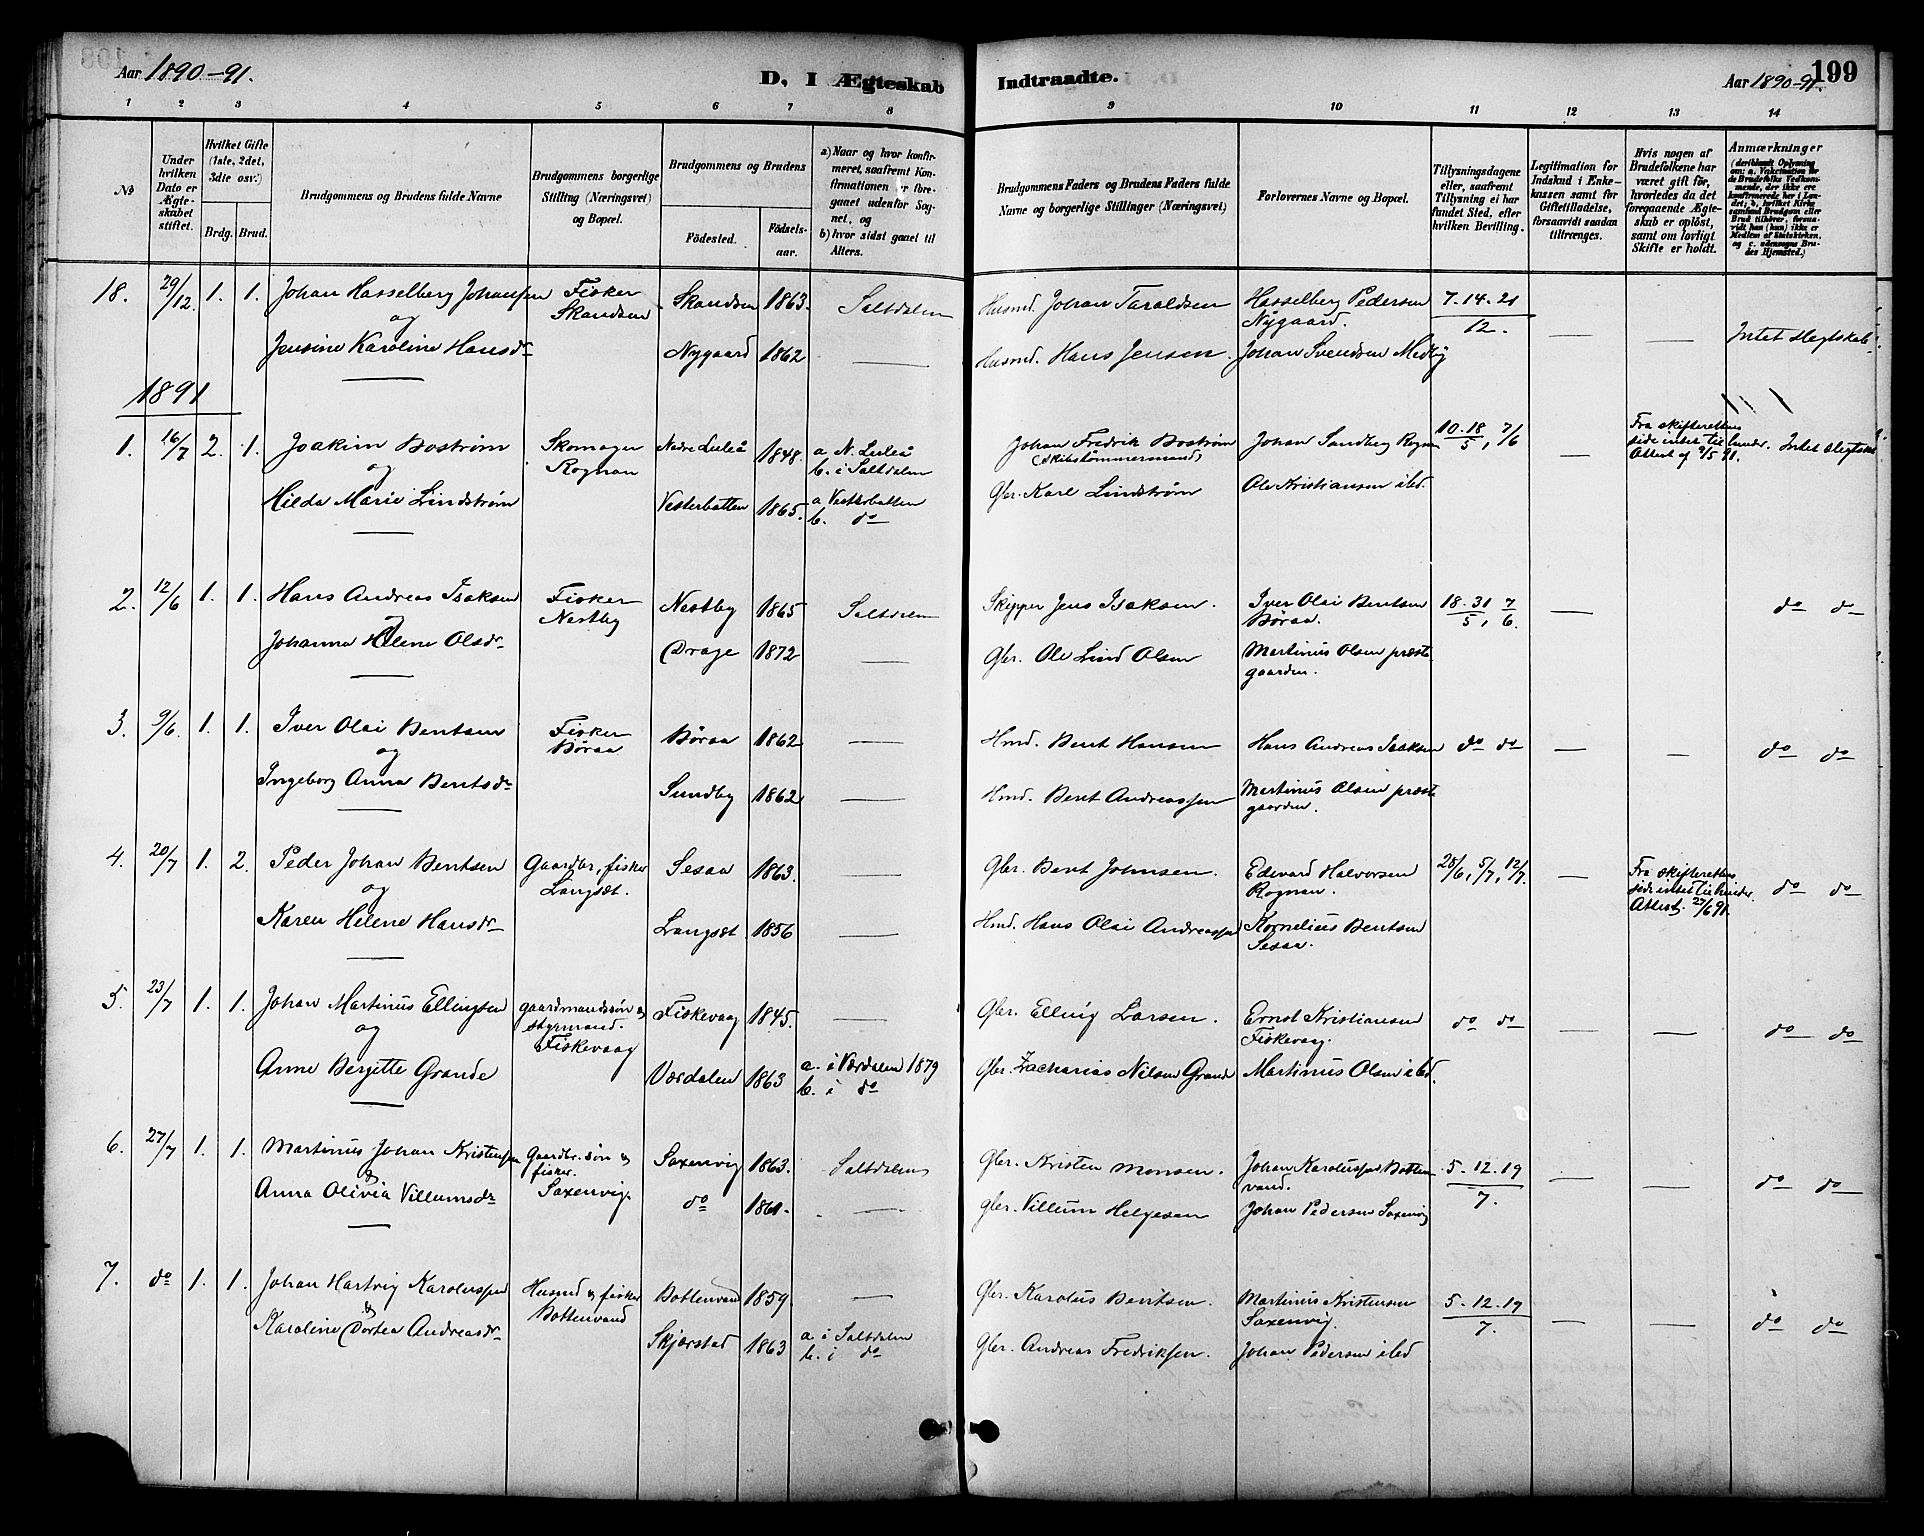 Aar 1890-91.
D, I Ægteskab Indtraadte.
Aar 1890-91.
199
1 2 3 4 5 6 7 8 9 10 11 12 13 14
No
Under hvilken Dato er Ægteskabet stiftet.
Hvilket Gifte (1ste, 2det, 3die osv.)
Brdg. Brud.
Brudgommens og Brudens fulde Navne
Brudgommens borgerlige Stilling (Næringsvei) og Bopæl.
Brudgommens og Brudens
Födested.
Födselsaar.
a) Naar og hvor konfirmeret, saafremt Konfirmationen er foregaaet udenfor Sognet, og
b) hvor sidst gaaet til Alters.
Brudgommens Faders og Brudens Faders fulde Navne og borgerlige Stillinger (Næringsvei)
Forlovernes Navne og Bopæl.
Tillysningsdagene eller, saafremt Tillysning ei har fundet Sted, efter hvilken Bevilling.
Legitimation for Indskud i Enkekassen samt for Giftetilladelse, forsaavidt saadan tiltrænges.
Hvis nogen af Brudefolkene har været gift för, hvorledes da det foregaaende Ægteskab er oplöst, samt om lovligt Skifte er holdt.
Anmærkninger
(deriblandt Oplysning om: a. Vakcination for de Brudefolks Vedkommende, der ikke ere konfirmerede her i Landet; b, hvilket Kirkesamfund Brudgom eller Brud tilhörer, forsaavidt han (hun) ikke er Medlem af Statskirken, og c. udensogns Brudes Hjemsted.)
18. 29/12. 1. 1. Johan Hasselberg Johansen Fisker Skandsen Skandsen 1863. Saltdalen Husmd. Johan Taraldsen Hasselberg Pedersen Nygaard. 7.14.21/12. — — Intet Slegtskab
og
Jensine Karoline Hansdr Nygaard 1862 — Husmd. Hans Jensen. Johan Svendsen Medby
1891
1. 16/7 2. 1. Joakim Boström Skomager Rognan Nedre Luleå 1848. a N. Luleå b. i Saltdalen Johan Fredrik Boström (Skibstömmermand) Johan Sandberg Rognan 10.18/5, 7/6 — Fra skifterettens side intet til hinder. Attest af 9/5 91. Intet slegtsk
og
Hilda Marie Lindström Vesterbotten 1865. a Vesterbotten b. do Gbr. Karl Lindström Ole Kristiansen ibd.
2. 12/6 1. 1. Hans Andreas Isaksen Fisker Nestby Nestby 1865 Saltdalen Skipper Jens Isaksen. Iver Olai Bentsen Böraa. 18.31/5, 7/6. — do do
Johanna Helene Olsdr Drage 1872 — Gbr. Ole Lind Olsen Martinus Olsen prestegaarden.
3. 9/6. 1. 1. Iver Olai Bentsen Fisker Böraa Böraa 1862 — Hmd. Bent Hansen Hans Andreas Isaksen do do — — do do
og
Ingeborg Anna Bentsdr Sundby 1862 — Hmd. Bent Andreassen Martinus Olsen prestegaarden.
4. 20/7 1. 2. Peder Johan Bentsen Gaardbr., fisker Langsæt. Sesaa 1863. — Gbr. Bent Johnsen. Edevard Halvorsen Rognan. 28/6, 5/7, 12/7. — Fra skifterettens side intet til hinder. Attest. 27/6 91. do do
og
Karen Helene Hansdr Langsæt 1856 — Hmd. Hans Olai Andreassen Kornelius Bentsen Sesaa.
5. 23/7 1. 1. Johan Martinus Ellingsen gaardmandssön & styrmand. Fiskevaag Fiskevaag 1845. — Gbr. Elling Larsen. Ernst Kristiansen Fiskevaag. do do — — do do
og
Anne Bergitte Grande Værdalen 1863 a. i Værdalen 1879 b. i do Gbr. Zacharias Nilsen Grande Martinus Olsen ibd.
6. 27/7 1. 1. Martinus Johan Kristensen Gaardbr. sön & fisker. Saxenvig. Saxenvig 1863. Saltdalen Gbr. Kristen Monsen. Johan Karolussen Bottenvand. 5.12.19/7. — — do do
&
Anna Olivia Villumsdr do 1861. — Gbr. Villum Helgesen Johan Pedersen Saxenvig
7. do 1. 1. Johan Hartvig Karolussen Husmd & fisker Bottenvand Bottenvand 1859. — Gbr. Karolus Bentsen. Martinus Kristensen Saxenvig. 5.12.19/7. — — do do
&
Karoline Dortea Andreasdr Skjerstad 1863 a. i Saltdalen b. i do Gbr. Andreas Fredriksen. Johan Pedersen ibd